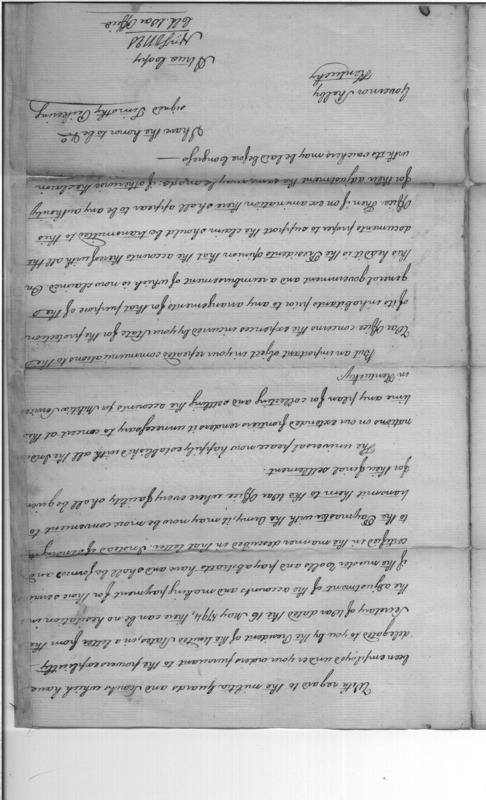 With regard to the militia guards and Scouts which have
been employed under your orders pursuant to the powers explicitly
delegated to you by the President of the United States, in a letter from the
Secretary of War dated the 16 May 1794, there can be no hesitation in
the adjustment of the accounts and making payment for their service
if the muster Rolls and pay abstracts have and shall be formed and
certified in the manner described in that letter. Instead of sending
to the Paymaster with the Army, it may now be more convenient to
transmit them to the War Office where every facility shall be given
for their final settlement.
The universal peace now happily established with all the Indian
nations on our extended frontiers renders it unnecessary to concert at this
time any plan for collecting and settling the accounts for Militia Service
in Kentucky.
But an important object in your repeated communications to the
War Office concerns the expences incurred by your State for the protection
of its inhabitants prior to any arrangements for that purpose of the
general government and a reimbursement of which is now claimed. On
this head it is the Presidents opinion that the accounts thereof with all the
documents proper to support the claim should be transmitted to this
Office. Then if on examination there shall appear to be any authority
for their adjustment the same may be made: if otherwise the claim
with its vouchers may be laid before Congress —
I have the honor to be &c
signed Timothy Pickering
Governor Shelby
Kentucky
A true Copy
War Office